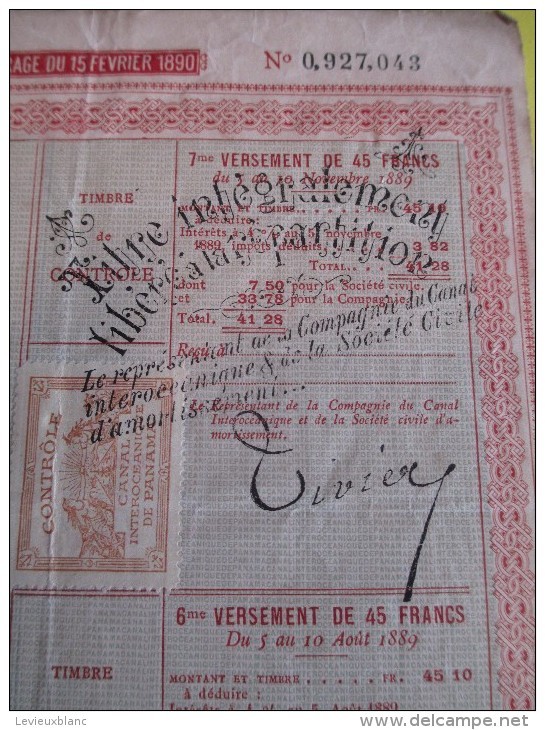 AGE DU 15 FEVRIER 1890
No 0,927,043
TIMBRE
de
CONTRÔLE
7me VERSEMENT DE 45 FRANCS
du 5 au 10 Novembre 1889
MONTANT ET TIMBRE . . . FR. 45 10
à déduire :
Intérêts à 4 o/o au 5 novembre
1889, impôts déduits. 3 82
TOTAL. . . 41 28
dont 7,50 pour la Société civile.
et 33,78 pour la Compagnie.
Total. 41 28
Reçu le
Le Représentant de la Compagnie du Canal
Interocéanique et de la Société civile d'a-
mortissement.
Titre intégralement
libéré à la répartition
Le représentant de la Compagnie du Canal
interocéanique & de la Société Civile
d'amortissement...
CONTRÔLE
CANAL
INTEROCEANIQUE
DE PANAMA
6me VERSEMENT DE 45 FRANCS
Du 5 au 10 Août 1889
TIMBRE
MONTANT ET TIMBRE . . . . . FR. 45 10
à déduire :
Intérêts à 4 o/o au 5 Août 1889
Levieuxblanc
http://www.delcampe.net